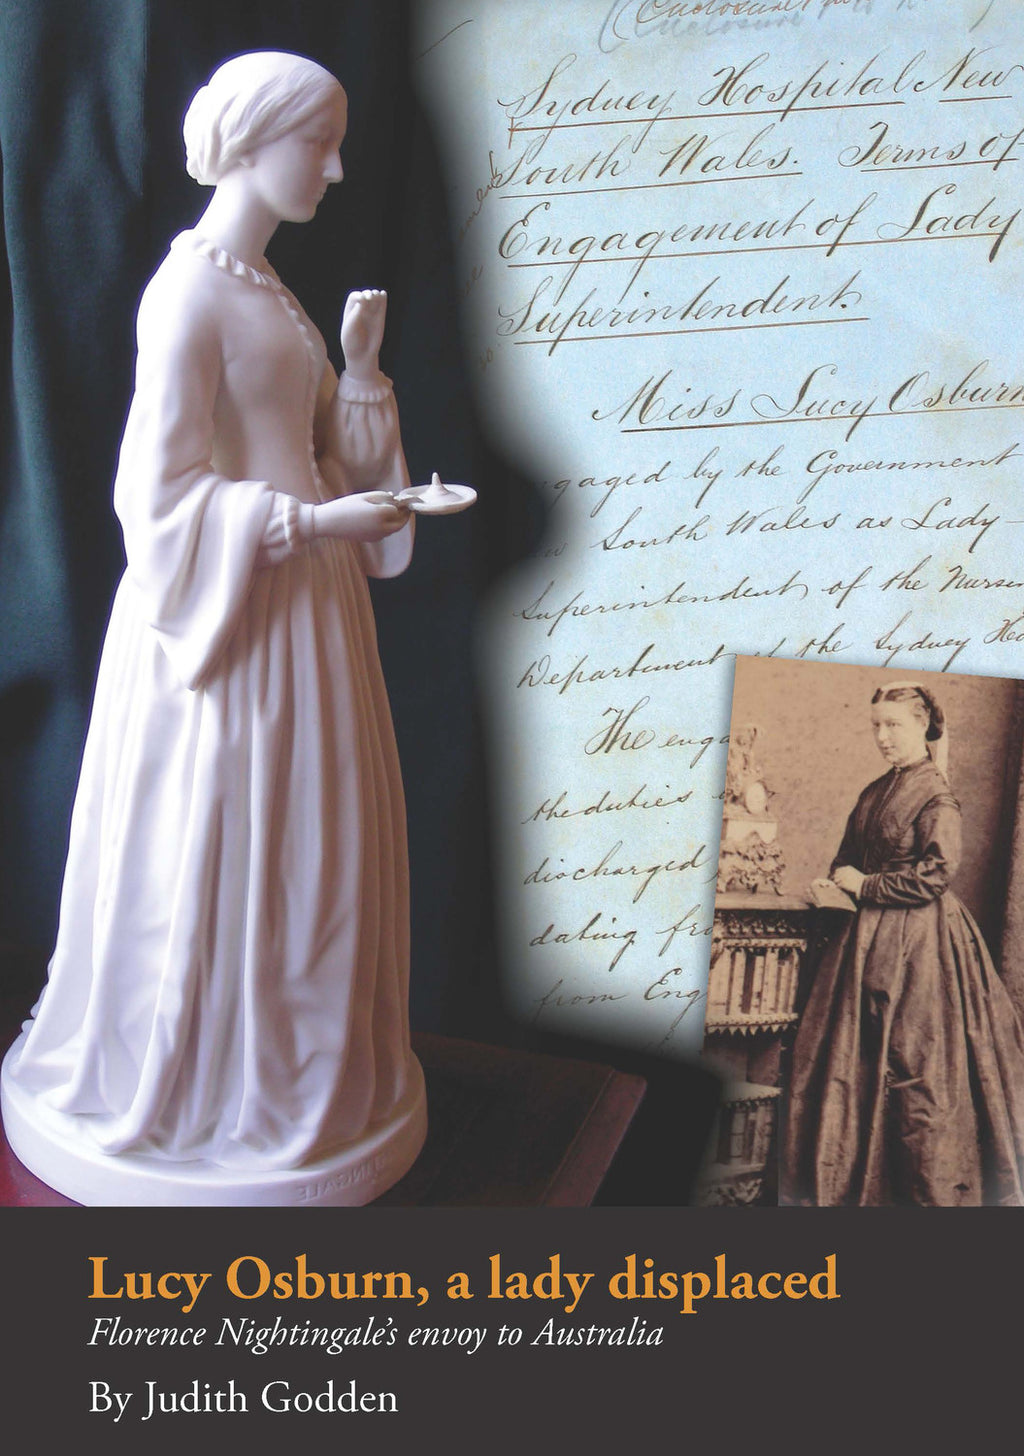 Sydney Hospital New
South Wales. Terms of
Engagement of Lady
Superintendent.
Miss Lucy Osburn
gaged by the Government
South Wales as Lady-
Superintendent of the Nurses
Department of the Sydney Ho
The enga
the duties
discharged
dating fro
from Eng
Lucy Osburn, a lady displaced
Florence Nightingale's envoy to Australia
By Judith Godden